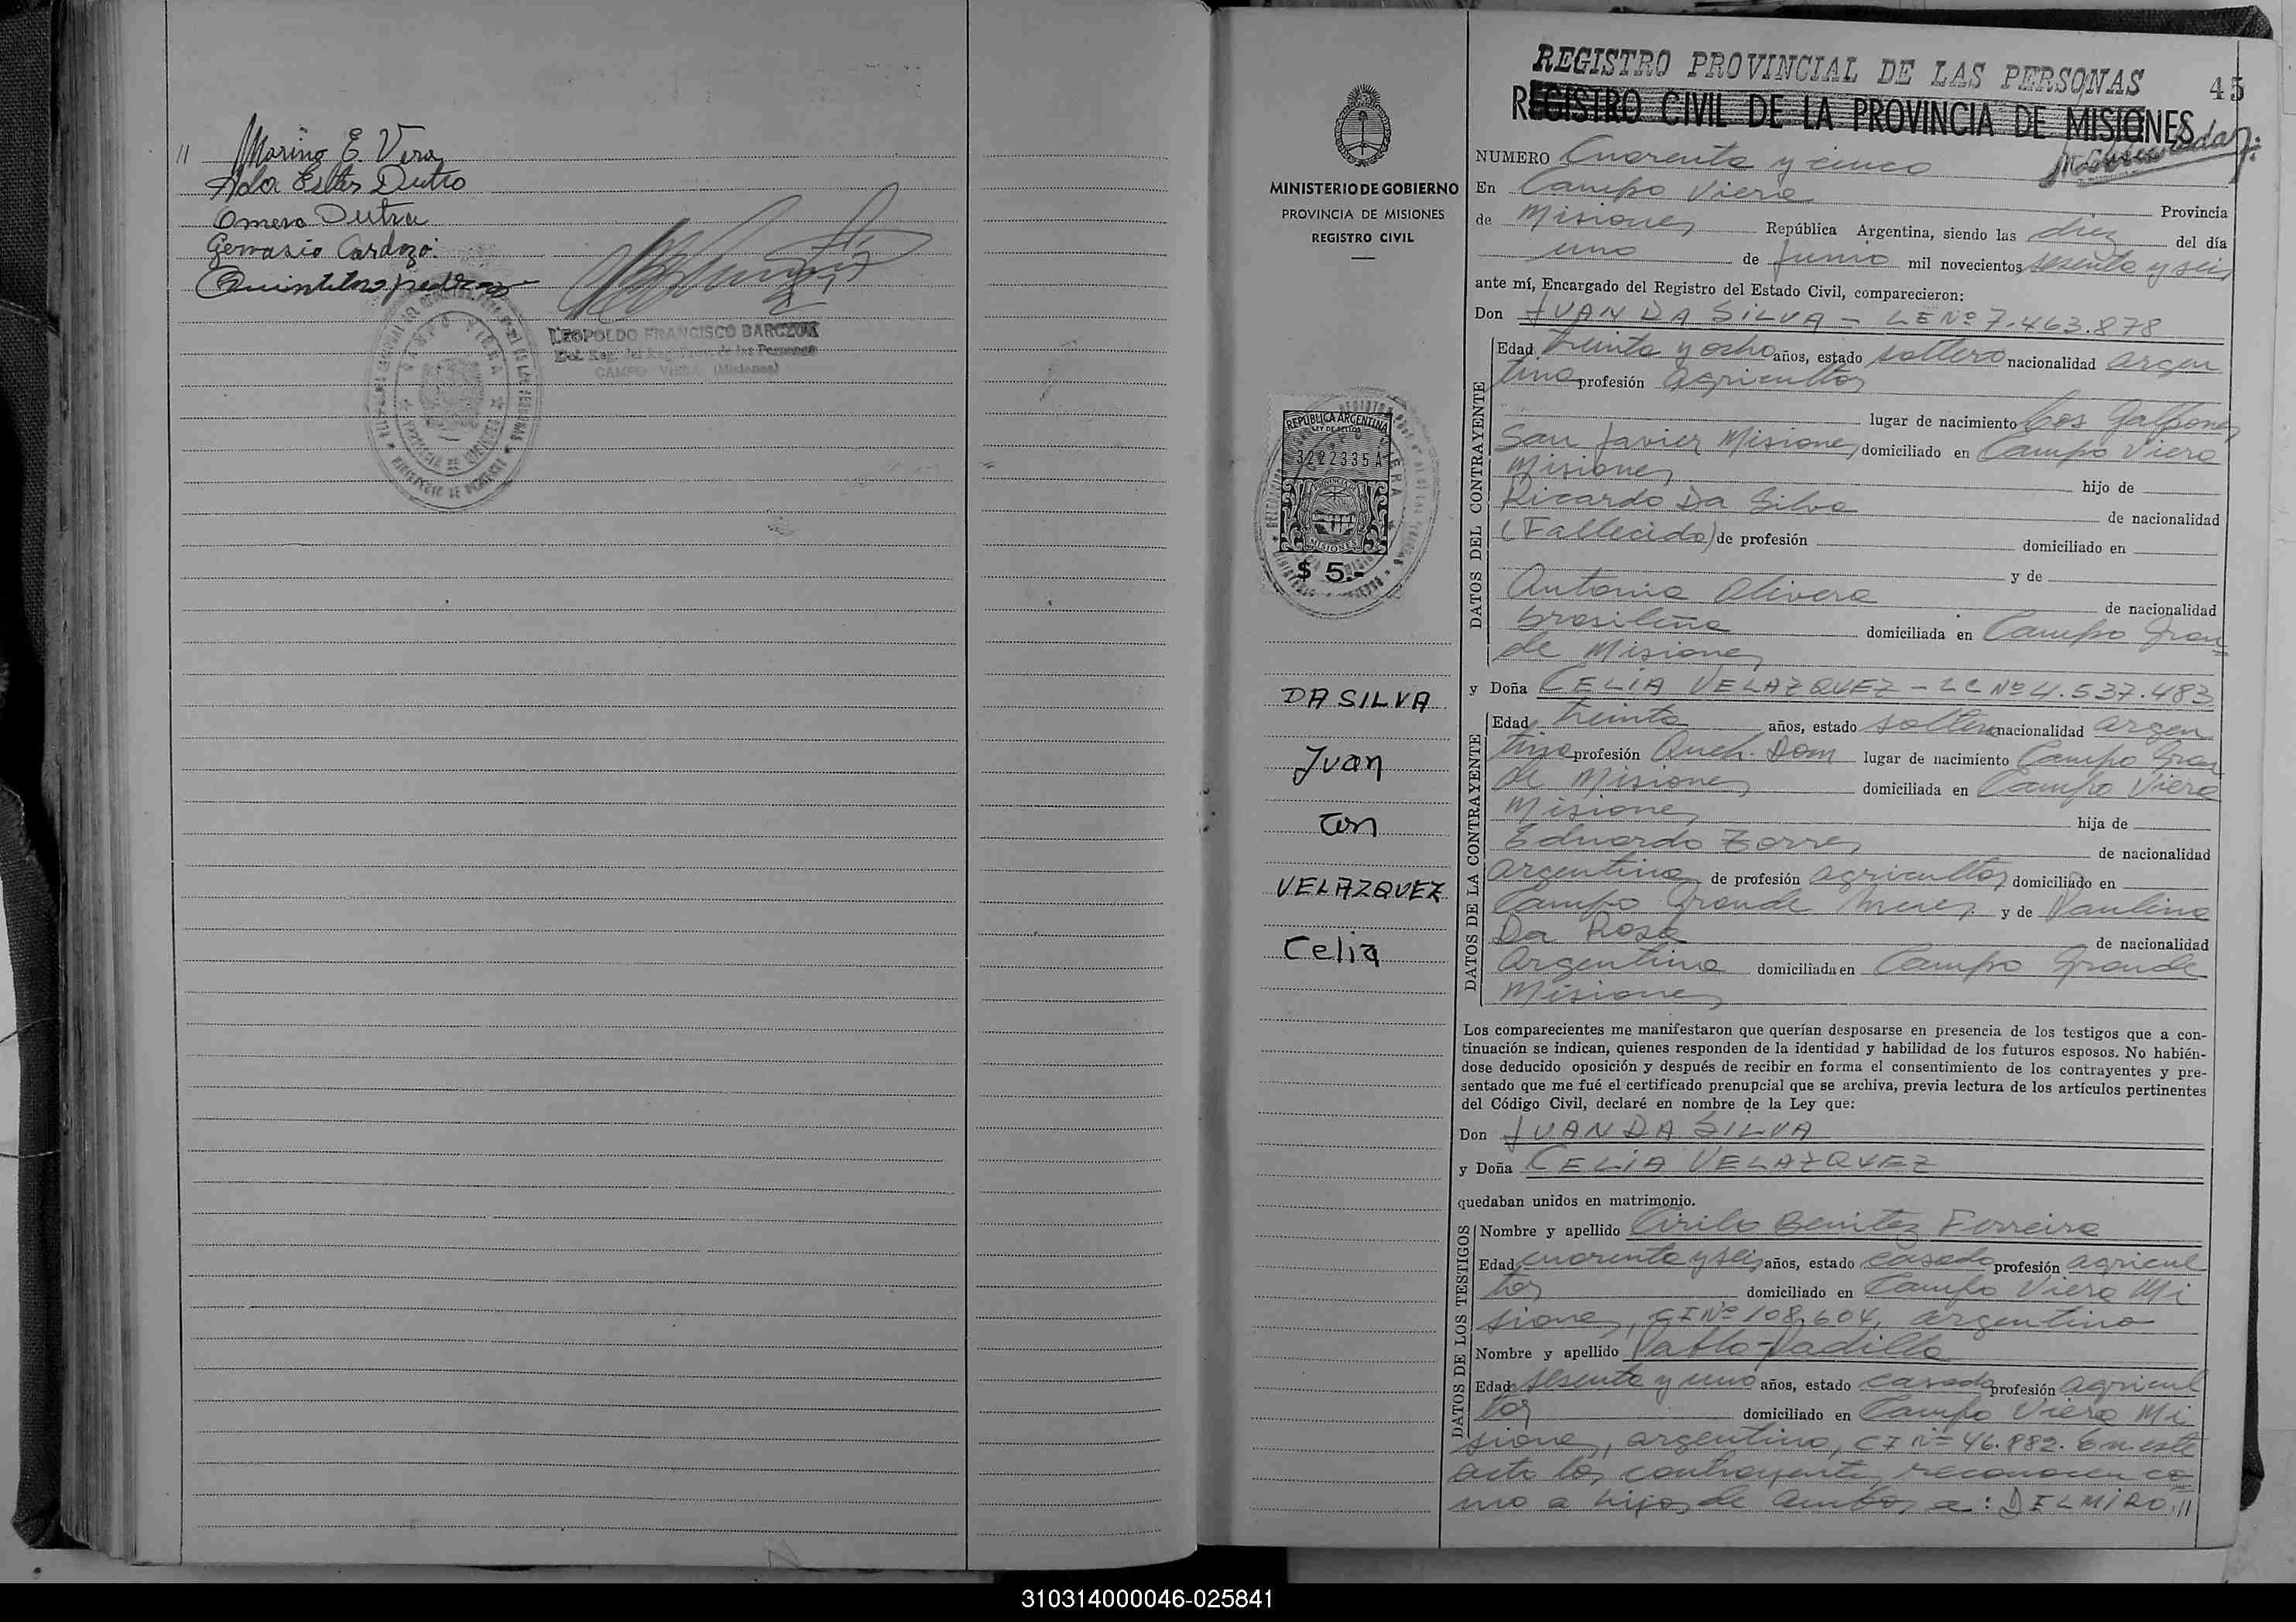 // Marino E. Vera
Ada Ester Dutro
Omero Dutra
Gervasio Cardozo
LEOPOLDO FRANCISCO BARCZUK
Del. Reg. del Registro de las Personas
CAMPO VIERA (Misiones)
MINISTERIO DE GOBIERNO
PROVINCIA DE MISIONES
REGISTRO CIVIL
REPUBLICA ARGENTINA
LEY DE SELLOS
3222335 A
MISIONES
$ 5.-
DA SILVA
Juan
con
VELAZQUEZ
Celia
REGISTRO PROVINCIAL DE LAS PERSONAS
45
REGISTRO CIVIL DE LA PROVINCIA DE MISIONES
NUMERO Cuarenta y cinco
En Campo Viera Provincia
de Misiones República Argentina, siendo las diez del día
uno de Junio mil novecientos sesenta y seis
ante mí, Encargado del Registro del Estado Civil, comparecieron:
Don JUAN DA SILVA - LE Nº 7.463.878
DATOS DEL CONTRAYENTE
Edad treinta y ocho años, estado soltero nacionalidad argen
tina profesión agricultor
lugar de nacimiento Los Galpones
San Javier Misiones domiciliado en Campo Viera
Misiones hijo de
Ricardo Da Silva de nacionalidad
(Fallecido) de profesión domiciliado en
y de
Antonia Olivera de nacionalidad
brasileña domiciliada en Campo Gran
de Misiones
y Doña CELIA VELAZQUEZ - LC Nº 4.537.483
DATOS DE LA CONTRAYENTE
Edad treinta años, estado soltera nacionalidad argen
tina profesión Queh. Dom lugar de nacimiento Campo Gran
de Misiones domiciliada en Campo Viera
Misiones hija de
Eduardo Torres de nacionalidad
argentina de profesión agricultor domiciliado en
Campo Grande Mnes. y de Paulina
Da Rosa de nacionalidad
Argentina domiciliada en Campo Grande
Misiones
Los comparecientes me manifestaron que querían desposarse en presencia de los testigos que a con-
tinuación se indican, quienes responden de la identidad y habilidad de los futuros esposos. No habién-
dose deducido oposición y después de recibir en forma el consentimiento de los contrayentes y pre-
sentado que me fué el certificado prenupcial que se archiva, previa lectura de los artículos pertinentes
del Código Civil, declaré en nombre de la Ley que:
Don JUAN DA SILVA
y Doña CELIA VELAZQUEZ
quedaban unidos en matrimonio.
DATOS DE LOS TESTIGOS
Nombre y apellido Cirilo Benitez Ferreira
Edad cuarenta y seis años, estado casado profesión agricul
tor domiciliado en Campo Viera Mi
siones, CI Nº 108.604, argentino
Nombre y apellido Pablo Padilla
Edad sesenta y uno años, estado casado profesión agricul
tor domiciliado en Campo Viera Mi
siones, argentino, CI Nº 46.882. En este
acto los contrayentes reconocen co
mo a hijos de ambos a: DELMIRO, //
310314000046-025841